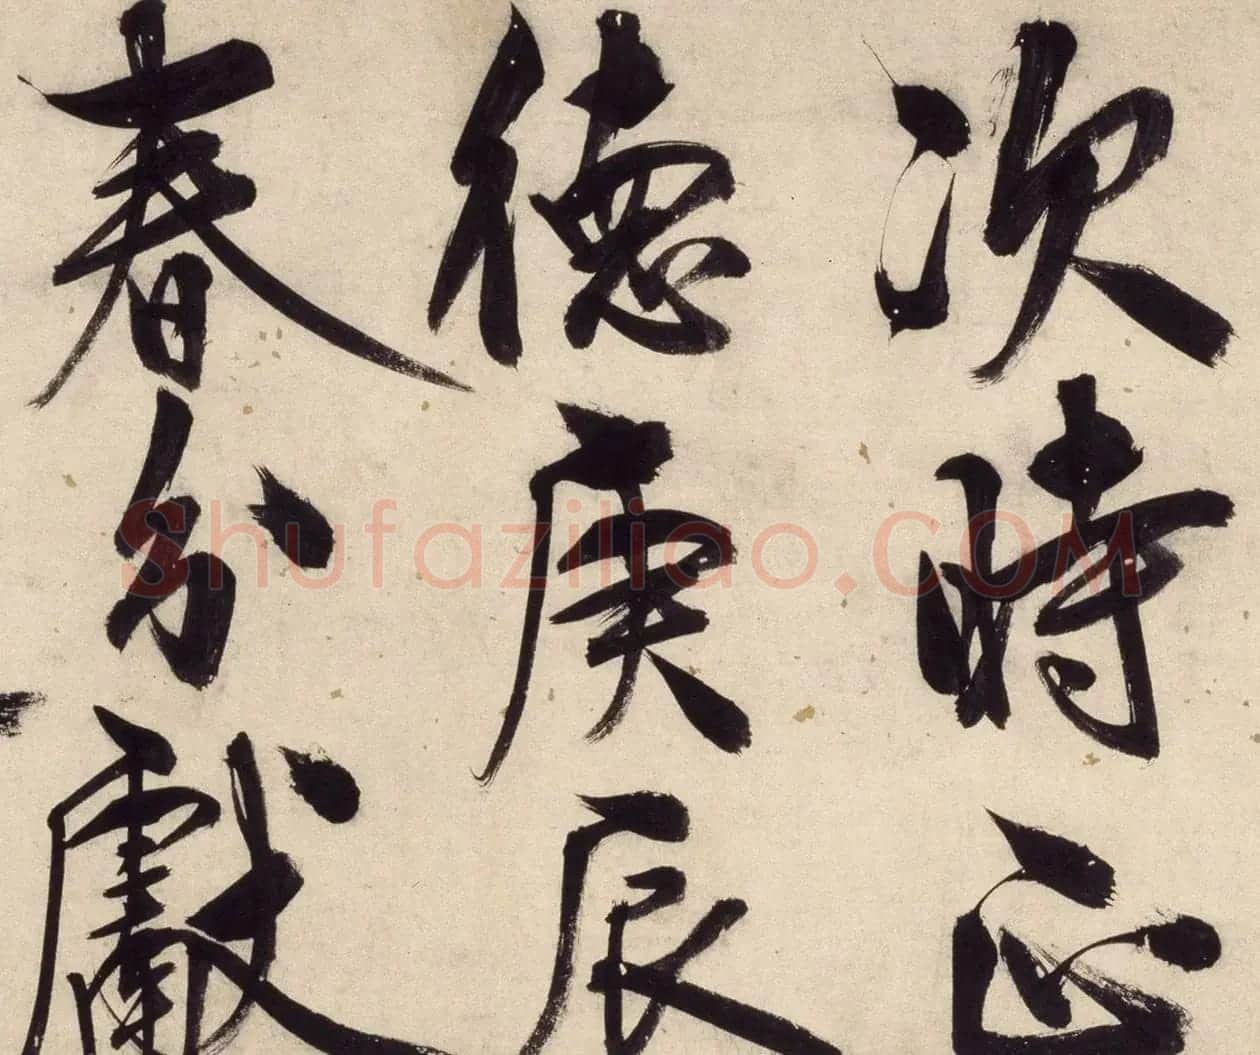 次時正
德庚辰
春分獻
Shufaziliao.COM